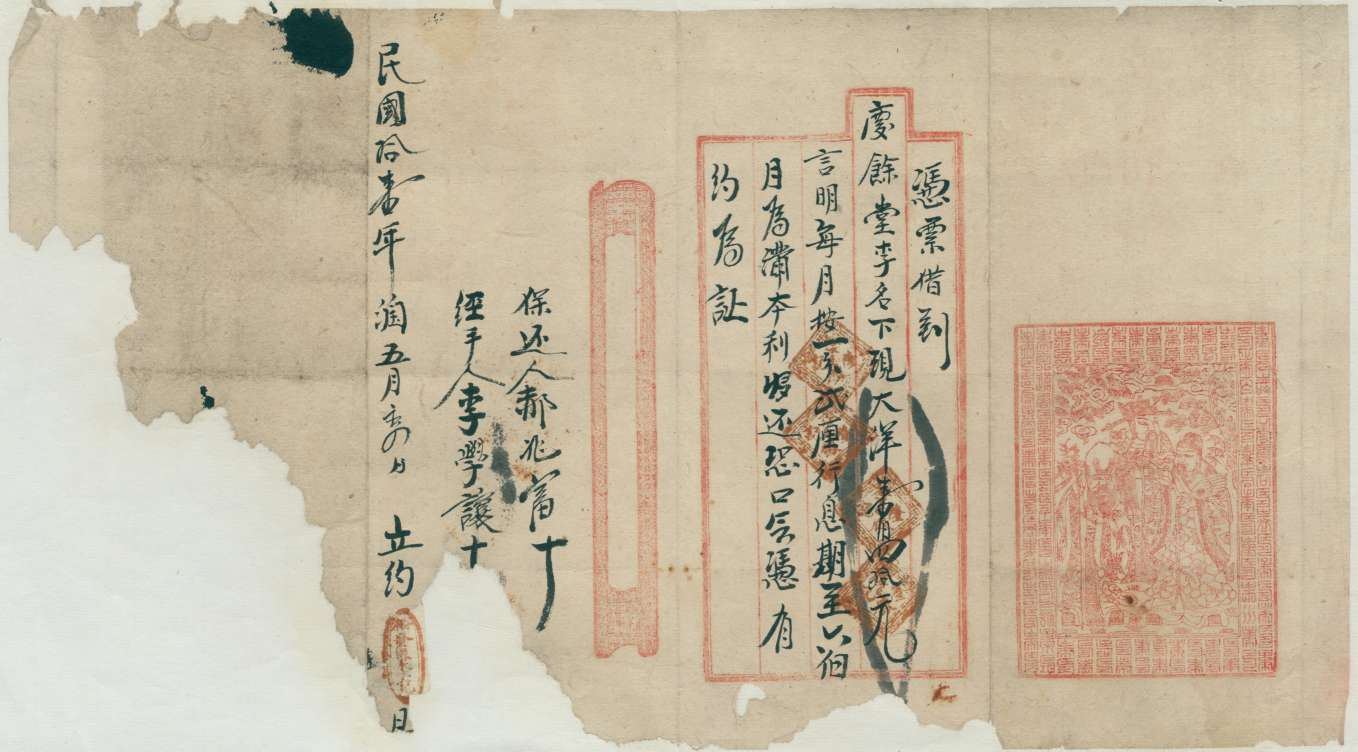 憑票借到
慶餘堂李名下現大洋壹百四拾元
言明每月按一分弍厘行息期至六個
月為滿本利歸还恐口無憑有
約為証
保还人郝兆富十
經手人李學讓十
民國拾壹年潤五月 日 立約